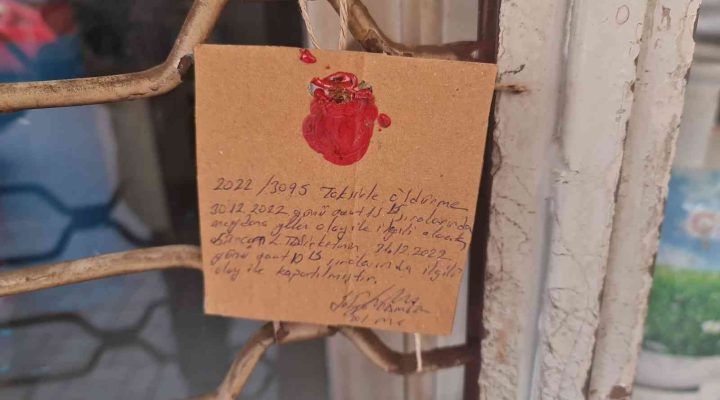 2022/3095 Taksirle öldürme
30.12.2022 günü saat 15 sıralarında
meydana gelen olay ile ilgili olarak
26.12.2022
günü saat 15 sıralarında ilgili
olay ile kapatılmıştır.